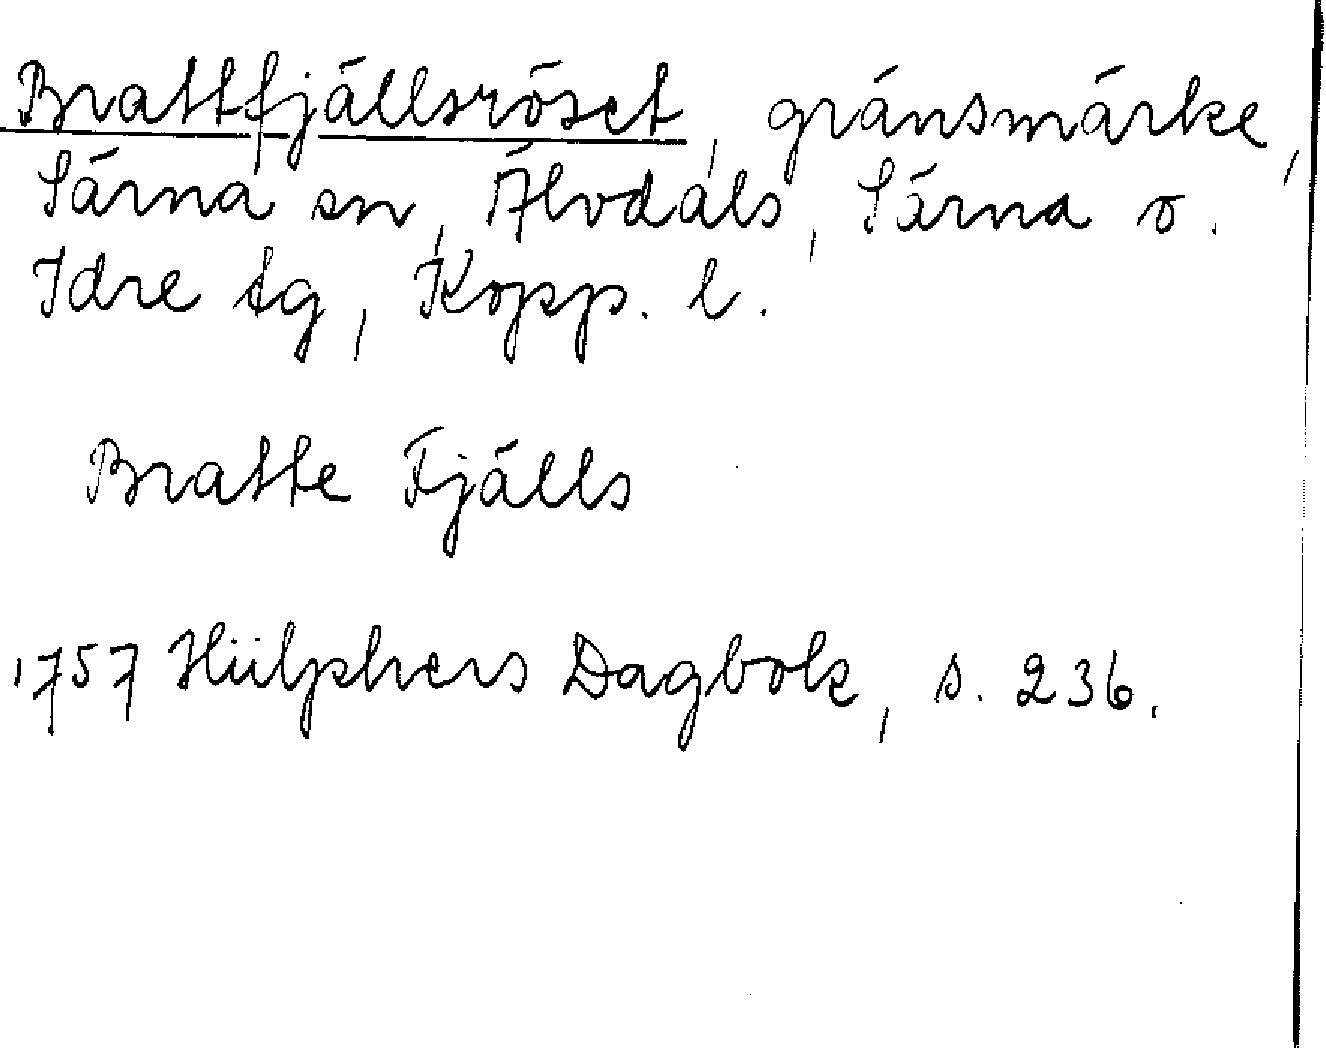 Brattfjällsröset, gränsmärke,
Särna sn, Älvdals, Särna o.
Idre tg, Kopp. l.
Bratte Fjälls
1757 Hülphers Dagbok, s. 236.